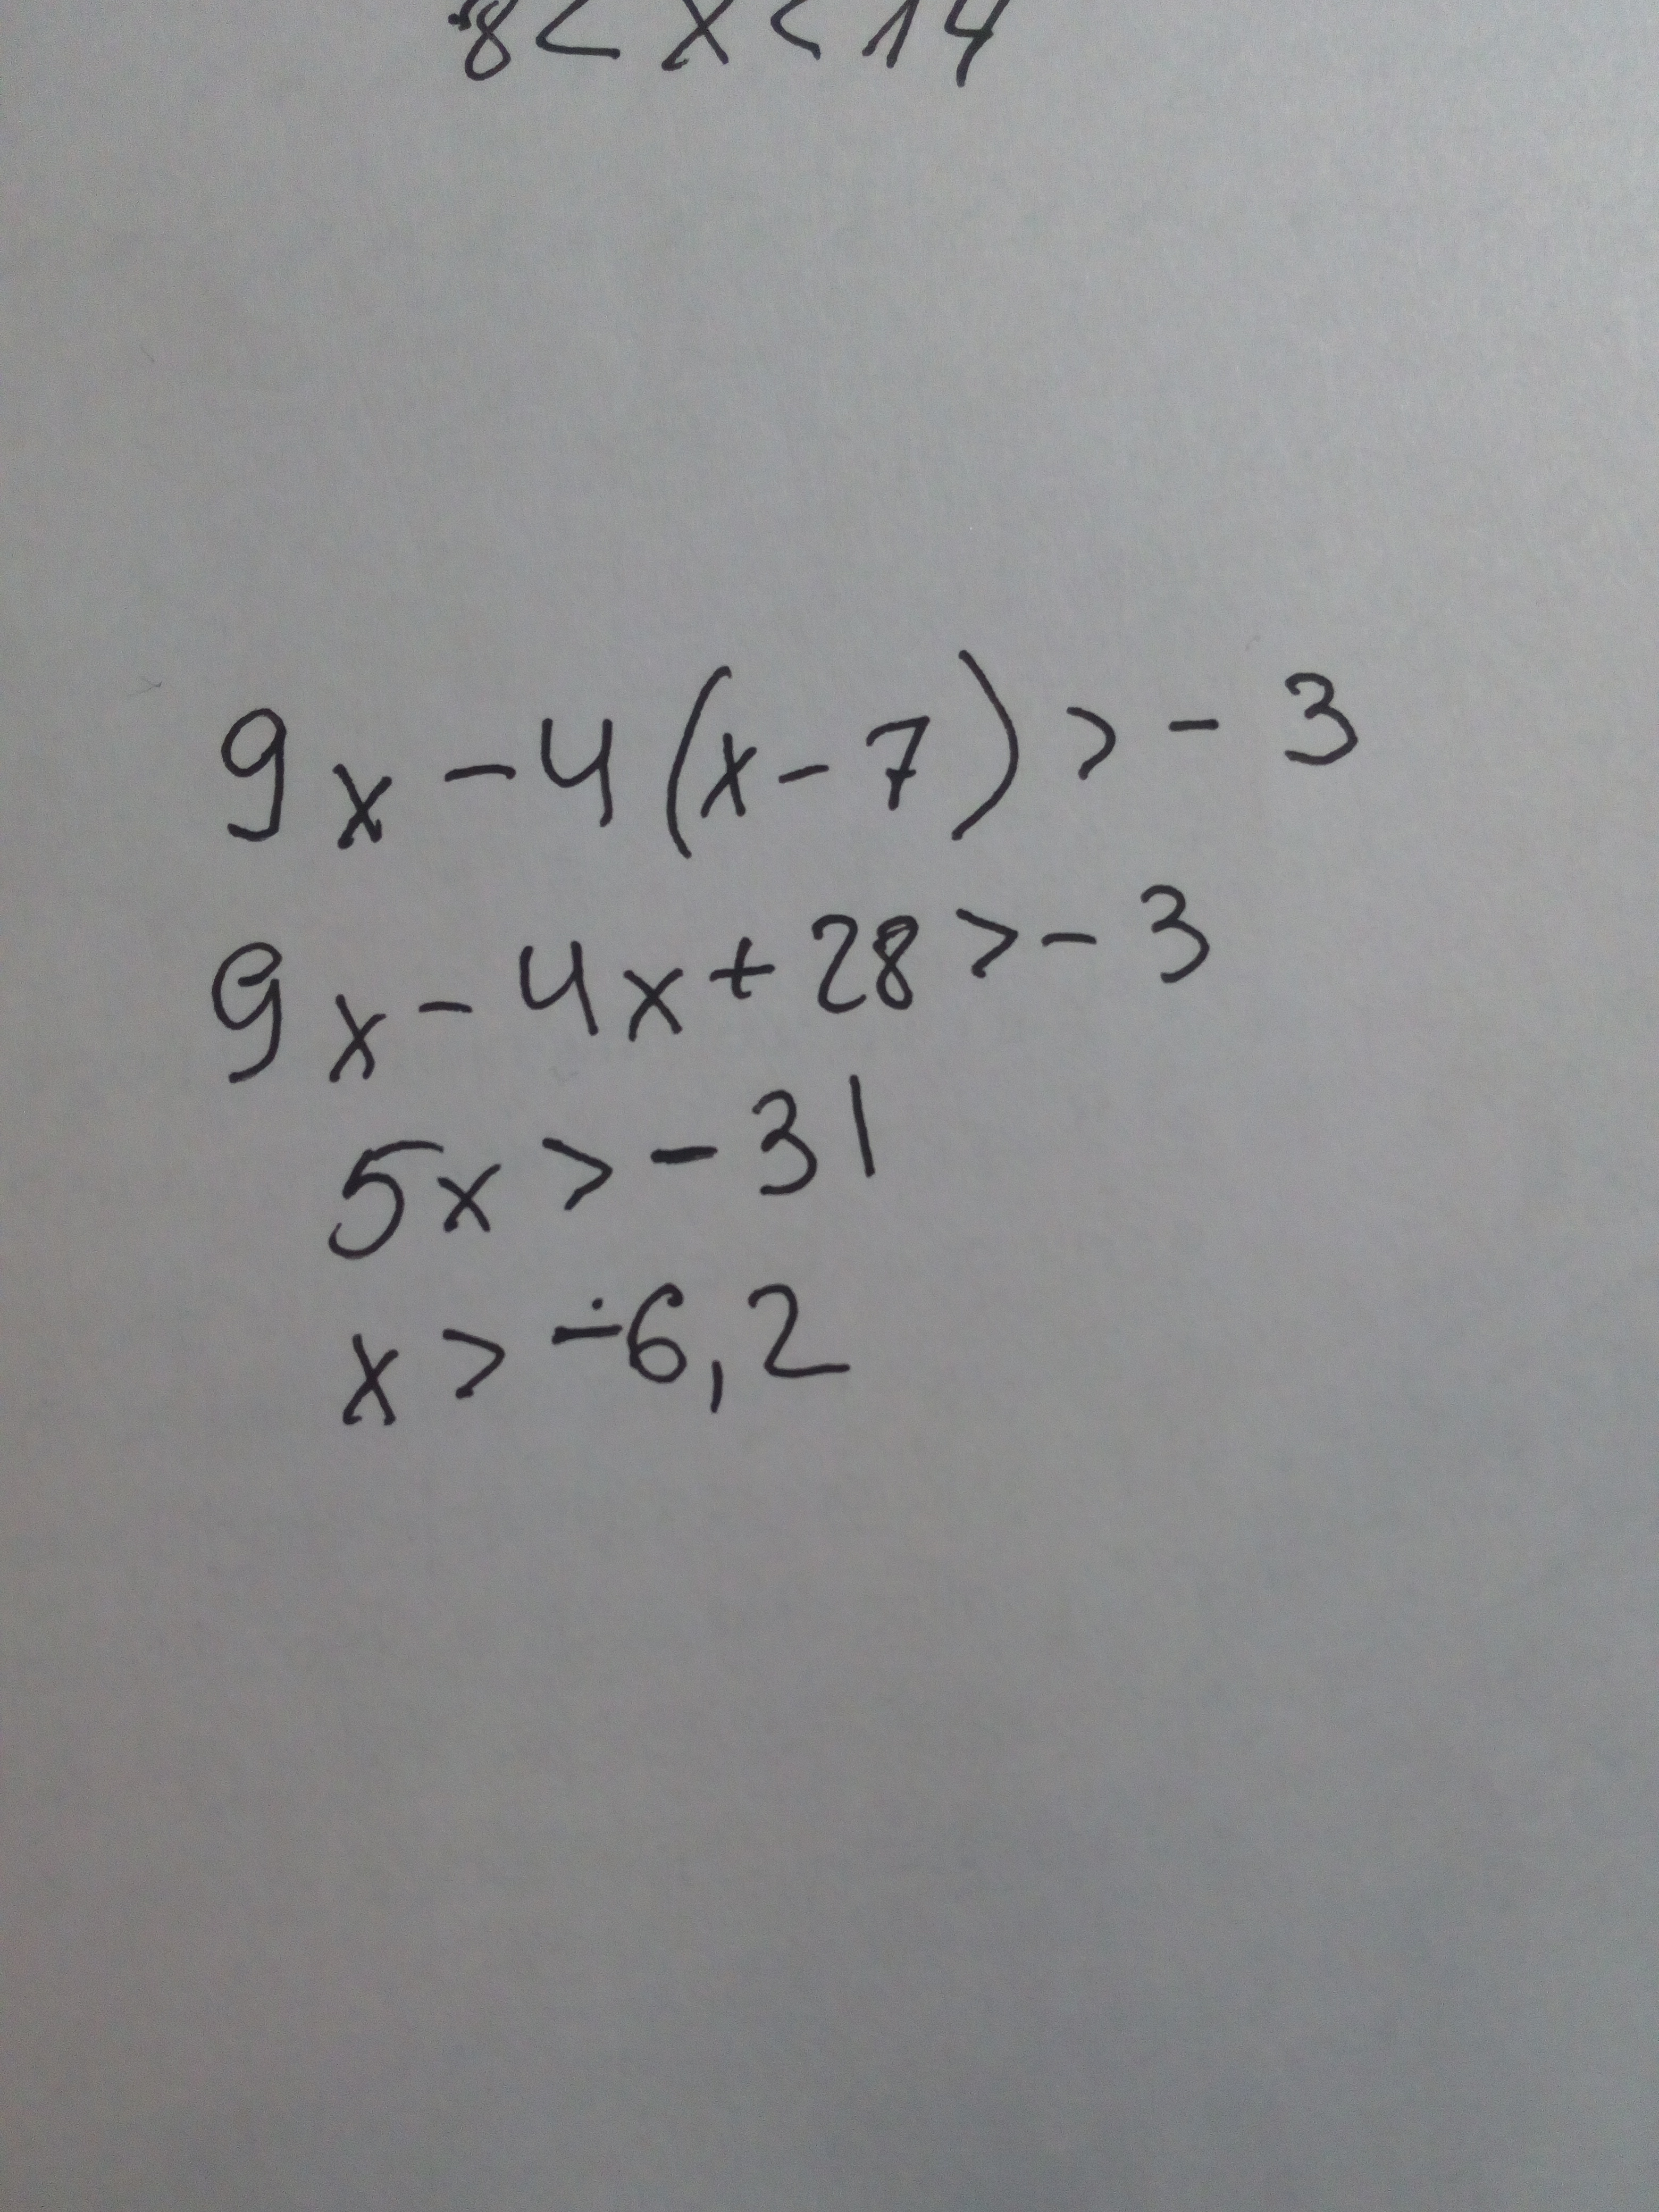 8 < x < 14
9x - 4(x - 7) > - 3
9x - 4x + 28 > - 3
5x > - 31
x > -6,2